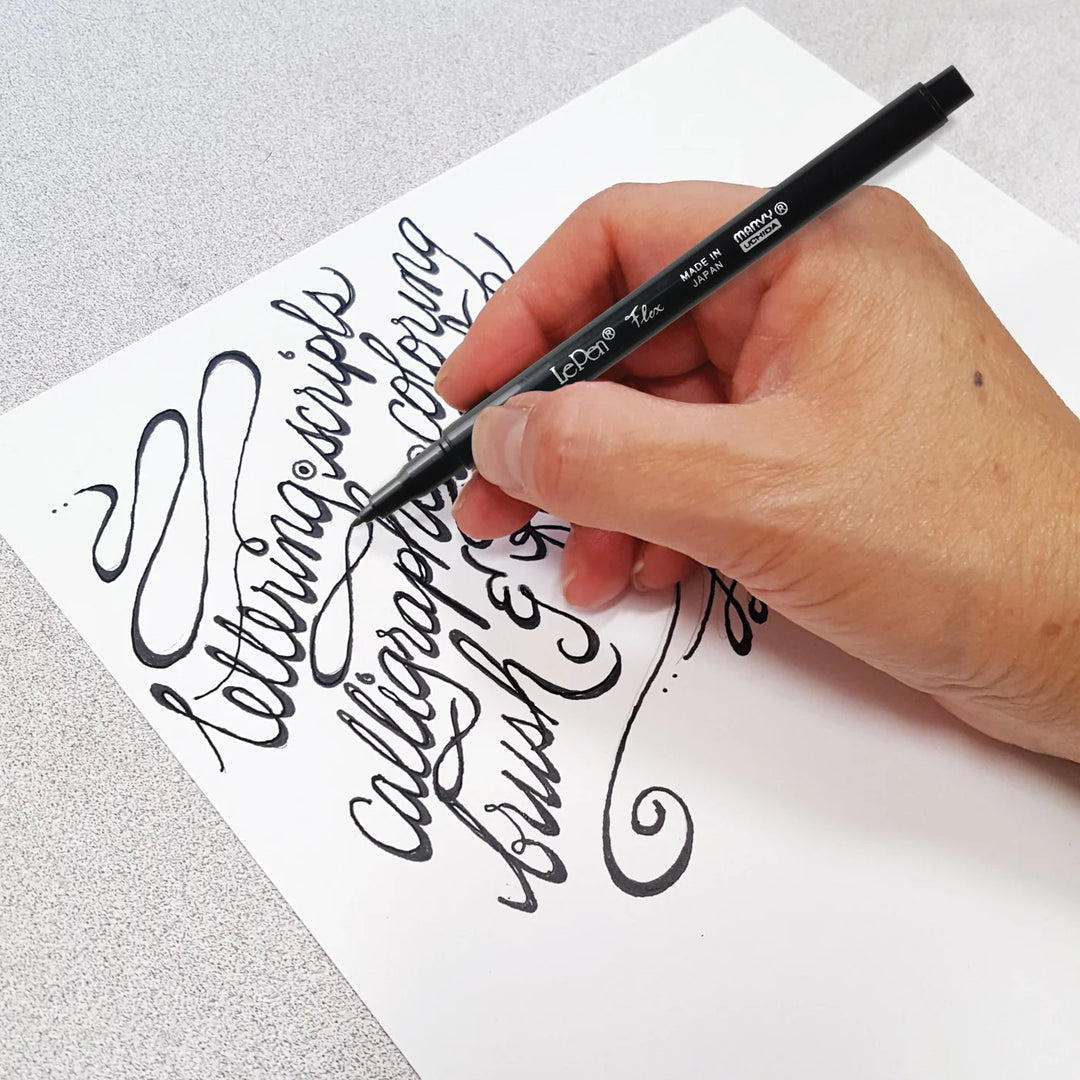 lettering scripts
Calligraphy coloring
brush
&
LePen® Flex
MADE IN
JAPAN
MARVY®
UCHIDA